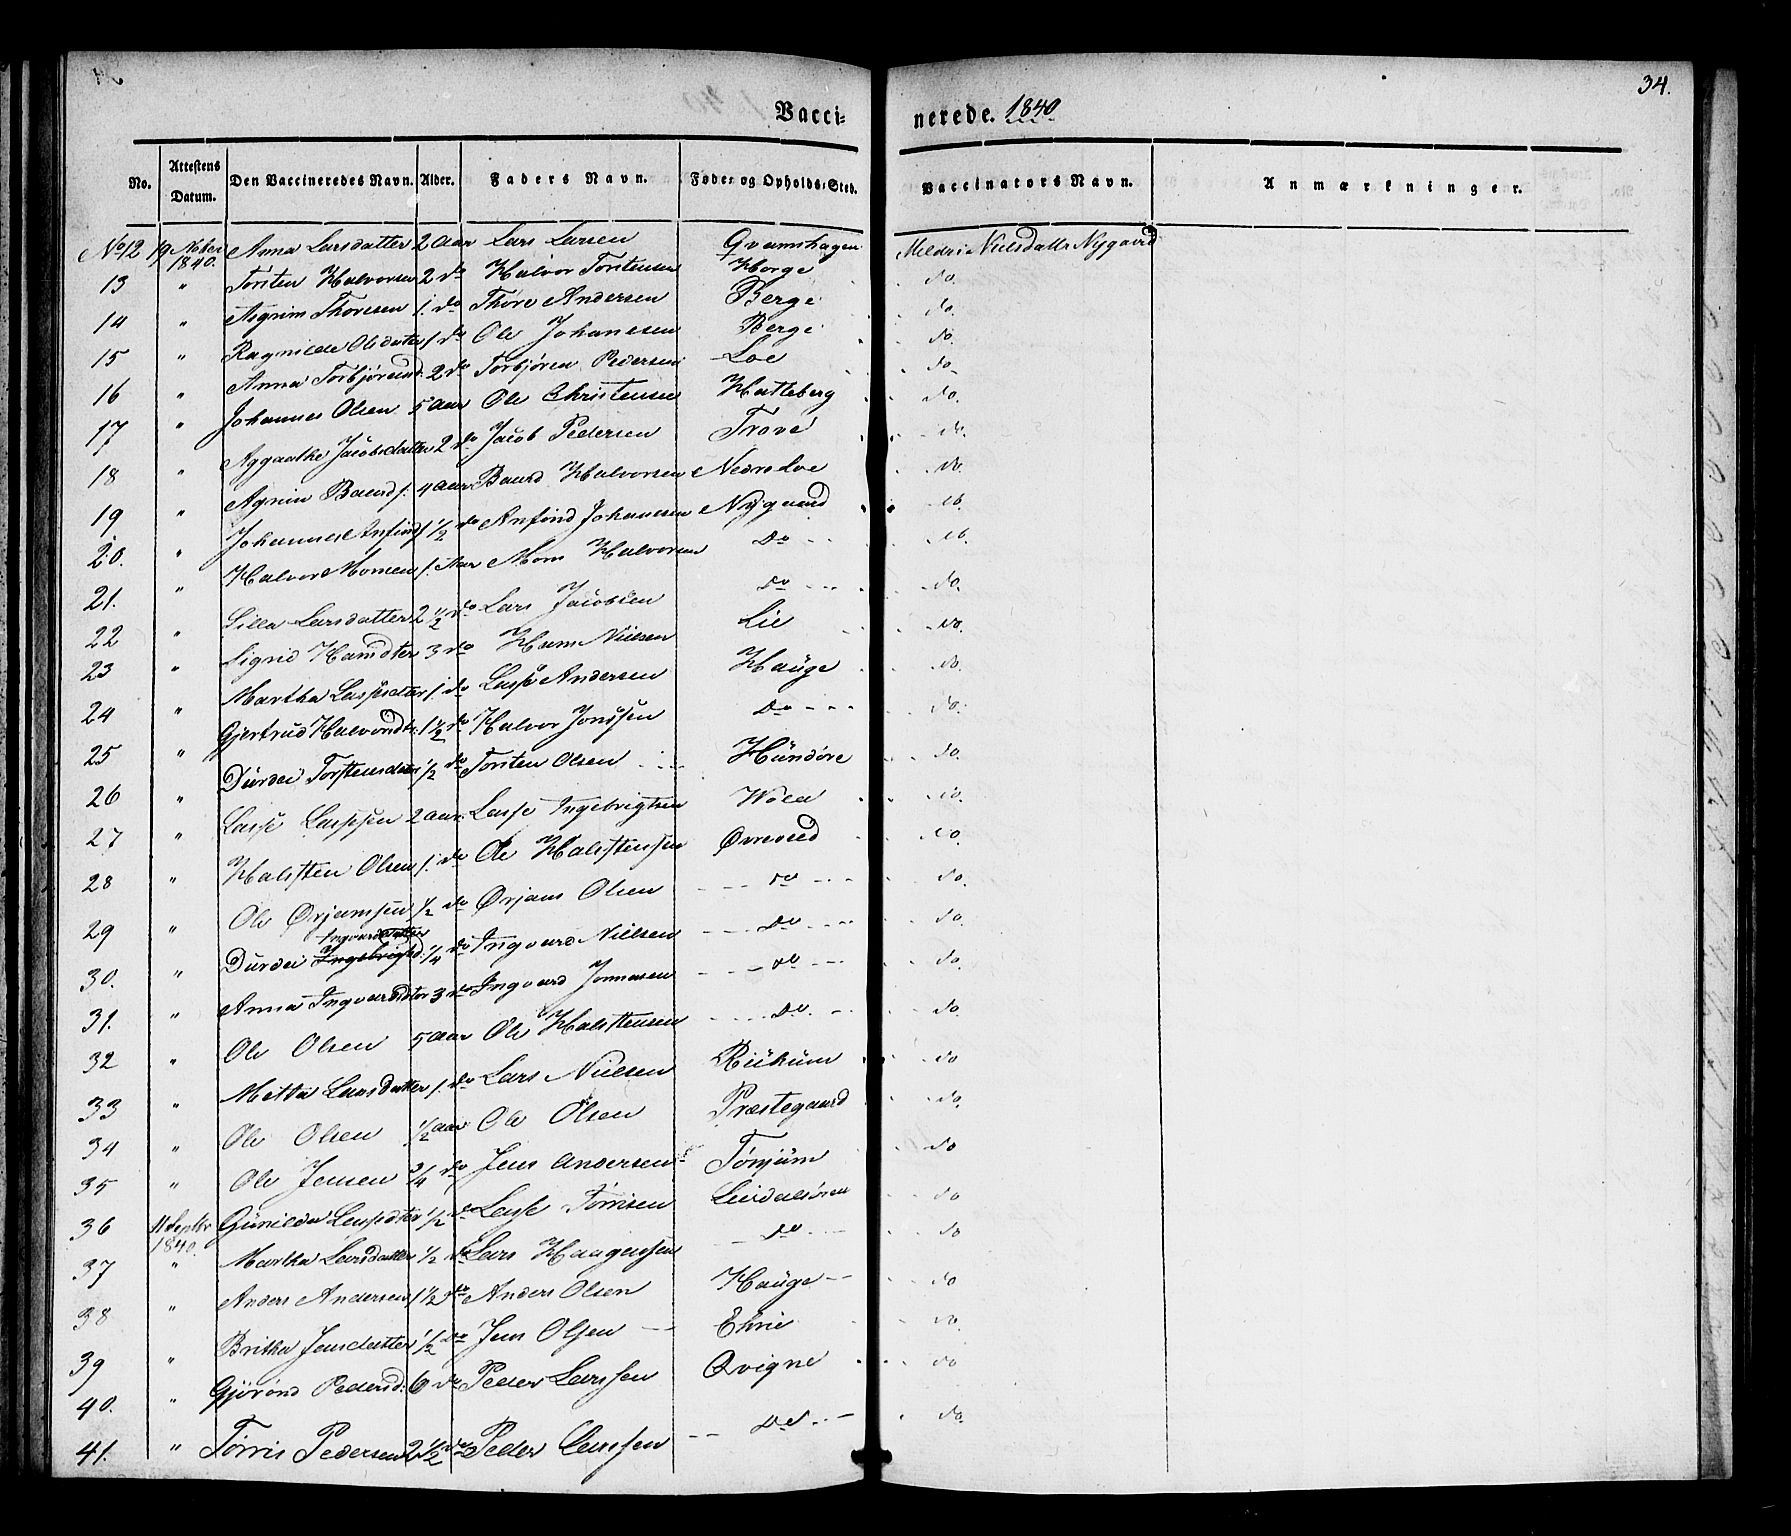 34.
Vaccinerede. 1840
No. Attestens Datum. Den Vaccineredes Navn. Alder. Faders Navn. Føde- og Opholds-Sted. Vaccinators Navn. Anmærkninger.
No 12 19 Nober 1840. Anna Larsdatter 2 Aar Lars Larsen Gramshagen Nielsdatter Nygaard
13 " Torsten Halvorsen 2 do Halvor Torstensen Horge do.
14 " Asgrim Thoresen 1. do Thore Andersen Berge do.
15 " Ragnilde Olsdatter 1 do Ole Johanesen Berge do.
16 " Anna Torbjørensd: 2 do Torbjören Pedersen Loe do
17 " Johannes Olsen 5 Aar Ole Christensen Hatleberg do.
18 " Aggaathe Jacobsdatter 2 do Jacob Pedersen Trove do.
19 " Agrim Baards: 4 Aar Baard Halvorsen Nedre Loe do.
20. " Johannes Anfinds 1 1/2 do Anfind Johanesen Nygaard do.
21. " Halvor Monsen 1. Aar Mons Halvorsen Do do.
22 " Silla Larsdatter 2 1/2 do Lars Jacobsen do do.
23 " Sigrid Hansdter 3 do Hans Nielsen Lie do.
24 " Martha Lassesdter 1. do Lasse Andersen Hauge do.
25 " Gjertrud Halvorsdtr: 1 1/2 do Halvor Jonssen Do do.
26 " Durdei Torstensdatter 1/2 do Torsten Olsen Hundøre do.
27 " Lasse Lassesen 2 Aar Lasse Ingebrigtsen Wold do.
28 " Halsten Olsen 1. do Ole Halstensen Øvrevold do.
29 " Ole Ørjansen 1/2 do Ørjans Olsen do do.
30. " Durdei Ingebrigtsd: Ingvardsdatter 1/4 do Ingvard Nielsen do do.
31. " Anna Ingvardsdter 3 do Ingvard Jonnasen do do.
32 " Ole Olsen 5 Aar Ole Halstensen Do do.
33 " Metta Larsdatter 1. do Lars Nielsen Riükum do
34 " Ole Olsen 1/2 Aar Ole Olsen Præstegaard do.
35 " Ole Jensen 3/4 do Jens Andersen Tønjum do
36 11 Septbr 1840. Gunilda Lassesdter 1/2 do Lasse Tørrisen Leirdalsøren do
37 " Martha Larsdatter 1/2 do Lars Haagensen do do
38 " Anders Andersen 1 1/2 do Anders Olsen Hauge do
39 " Britha Jensdatter 1/2 do Jens Olsen Ehrie do.
40. " Gjørond Pedersd: 6 do Peder Larssen Qvigne do
41. " Tørris Pedersen 2 1/2 do Peder Larssen Do do.